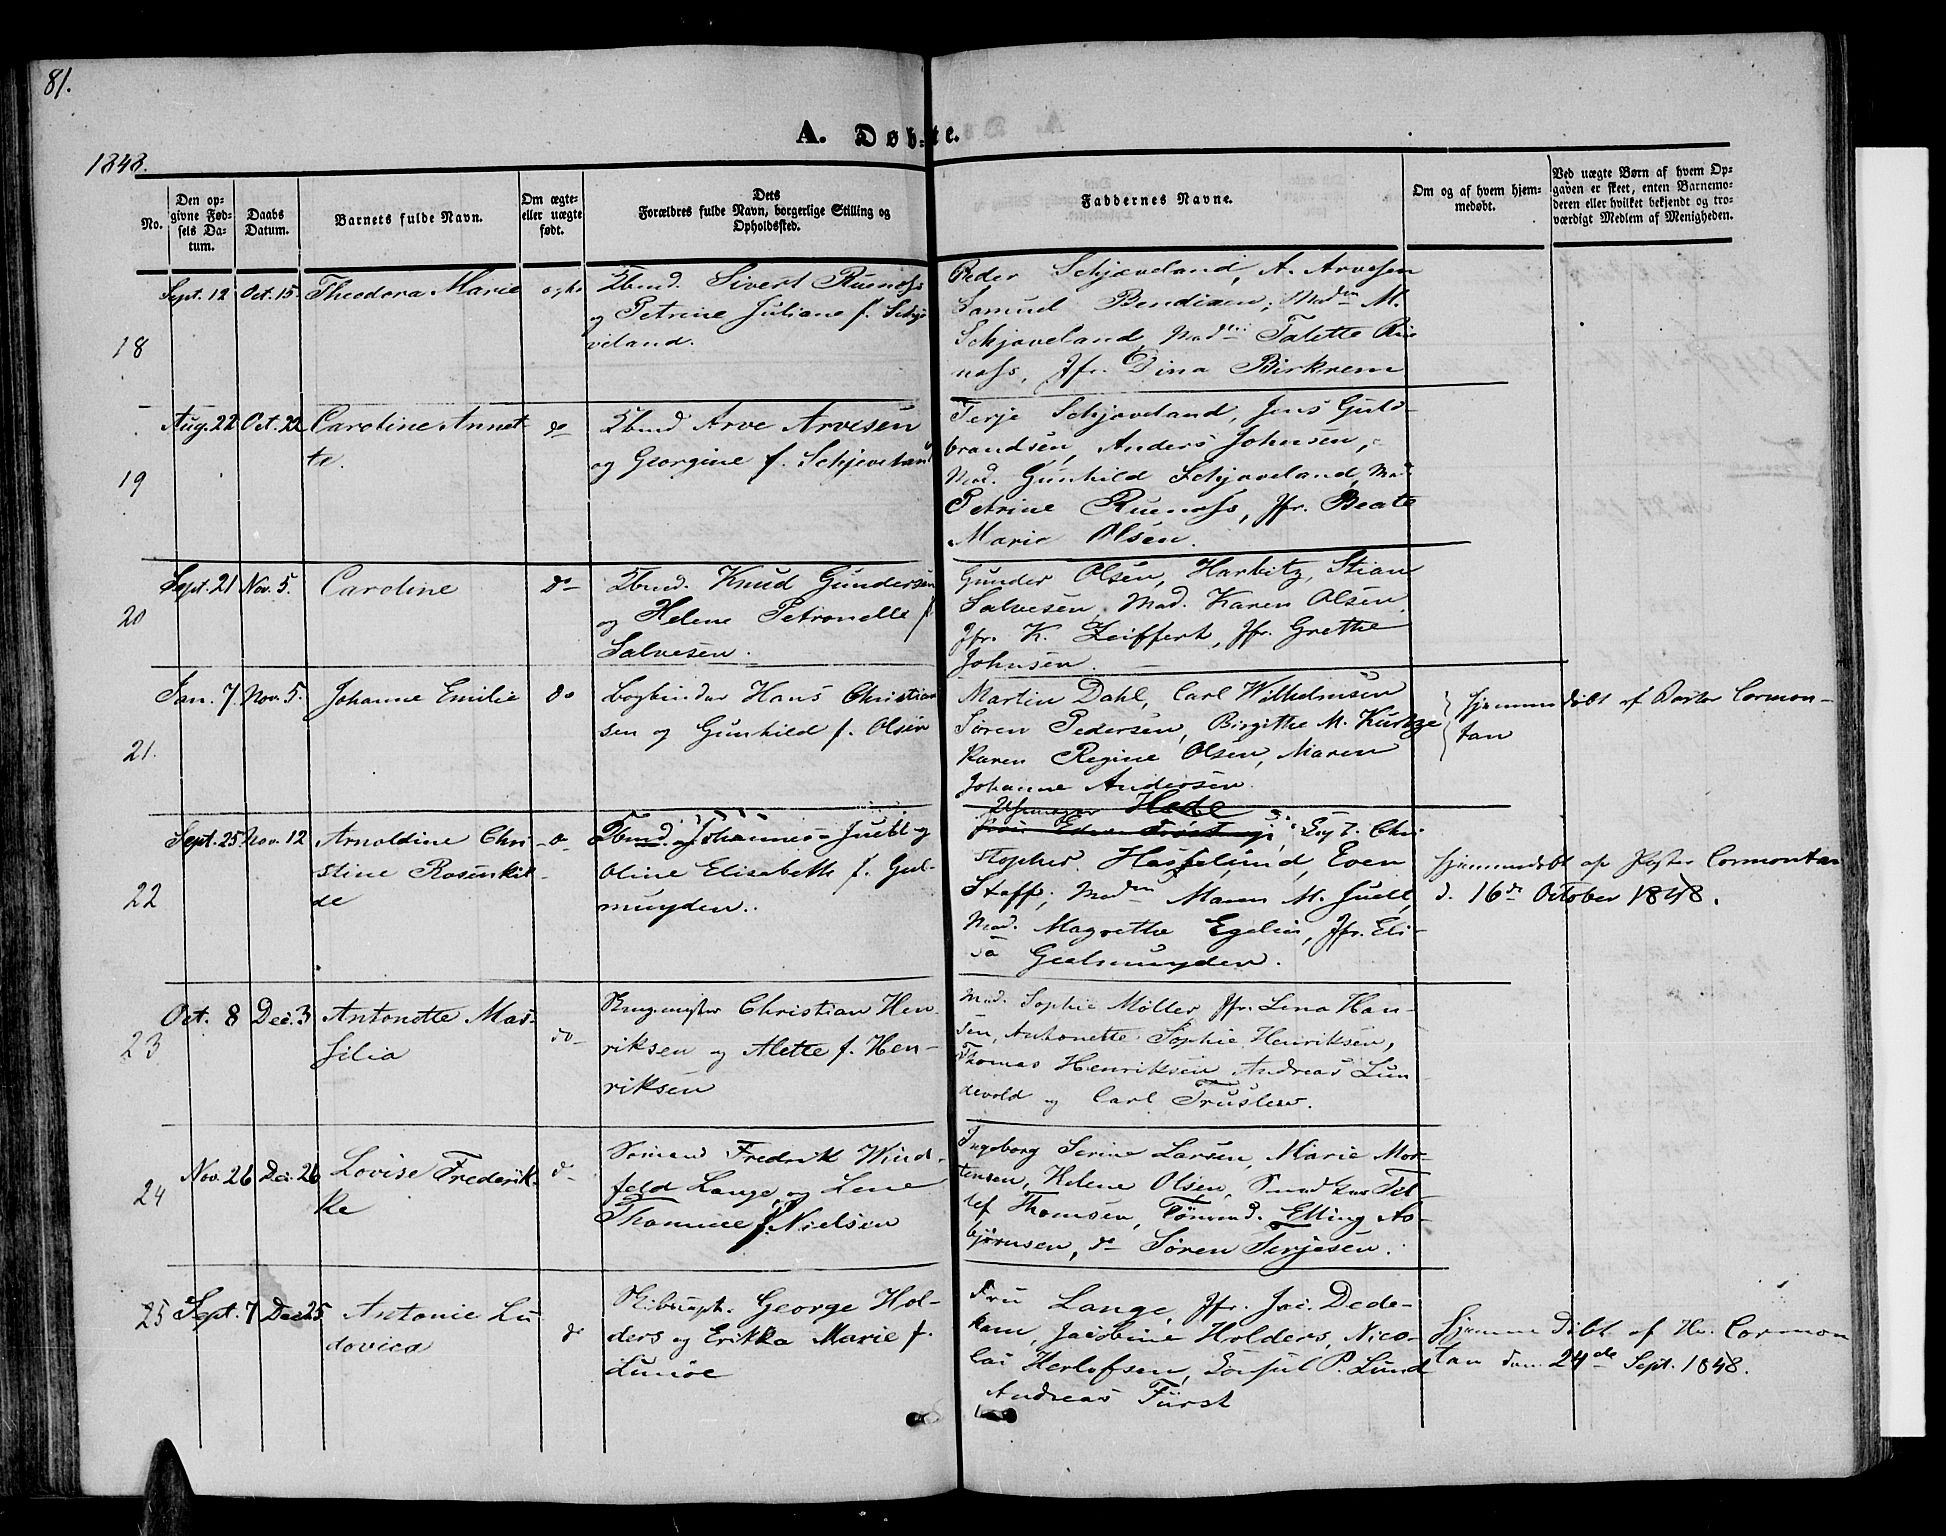 81.
A. Døbte.
1848.
No.
Den op-
givne Fød-
sels Da-
tum.
Daabs
Datum.
Barnets fulde Navn.
Om ægte-
eller uægte
født.
Dets
Forældres fulde Navn, borgerlige Stilling og
Opholdssted.
Faddernes Navne.
Om og af hvem hjem-
medøbt.
Ved uægte Børn af hvem Op-
gaven er skeet, enten Barnemo-
deren eller hvilket bekjendt og tro-
værdigt Medlem af Menigheden.
18
Sept. 12
Oct. 15.
Theodora Marie
ægte
Tbmd. Sivert Ruenæss
og Petrine Juliane f. Schjø
veland.
Peder Schjæveland, A. Arvesen
Samuel Bendixen, Madm M.
Schjæveland, Madm Talette Rue
næss, Jfr. Dina Birkrem
19
Aug. 22
Oct. 22
Caroline Annet
te.
do
Tbmd Arve Arvesen
og Georgine f. Schjeveland
Terje Schjæveland, Jens Guld-
brandsen, Anders Johnsen,
Mad. Gunhild Schjæveland, Mad
Petrine Ruenæss, Jfr. Beate
Marie Olsen.
20
Sept. 21
Nov. 5.
Caroline
do
Tbmd. Knud Gundersen
og Helene Petronelle f
Salvesen.
Gunder Olsen, Harbitz, Stian
Salvesen, Mad. Karen Olsen
Jfr. K. Zeiffert, Jfr. Grethe
Johnsen.
21.
Jan. 7.
Nov. 5.
Johanne Emilie
do
Bogbinder Hans Christian
sen og Gunhild f. Olsen
Martin Dahl, Carl Wilhelmsen
Søren Pedersen, Birgithe M. Kurtze
Karen Regine Olsen, Maren
Johanne Andersen.
hjemmedøbt af Pastor Cormon-
tan
22
Sept. 25
Nov. 12
Arnoldine Chri-
stine Rosenkil-
de
do
Tbmd. Johannes Juell og
Oline Elisabeth f. Gul-
muyden.
Hede
Chri
stopher Hasselund, Even
Staff, Madm Maren M. Juell,
Mad. Magrethe Egelin, Jfr. Eli-
sa Gulmuyden.
hjemmedøbt af Pastor Cormontan
d. 16de October 1848.
23
Oct. 8
Dec. 3
Antonette Mar-
silia
do
Christian Hen-
riksen og Alette f. Hen-
riksen
Mad. Sophie Møller, Jfr. Lena Han-
sen, Anthonette Sophie Henriksen,
Thomas Henriksen Andreas Lun
devold og Carl Truslew.
24
Nov. 26
Dec. 26
Lovise Frederik-
ke
do
Sømand Fredrik Wind-
feldt Lange, og Lene
Thomine f. Nielsen
Ingeborg Serine Larsen, Marie Mor-
tensen, Helene Olsen, Det-
lef Thomsen, Tømmd. Elling As-
bjørnsen, do Søren Terjesen.
25
Sept. 7
Dec. 25
Antonie Lu
dovica
do
Skibscapt. George Hol-
ders og Erikka Marie f.
Lunøe
Fru Lange, Jfr. Jac. Dede-
kam, Jacobine Holders, Nico-
lai Herlofsen, Consul P. Lund
Andreas Fürst
hjemmedøbt af Hr. Cormon
tan den 24de Sept. 1848.